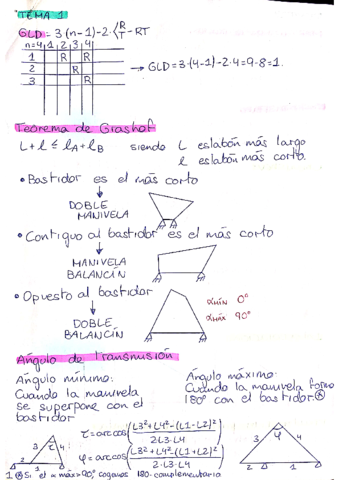 TEMA 1
GLD = 3·(n-1)-2·<R T - RT
n=4 1 2 3 4
1 R R
2 R
3 R
→ GLD=3·(4-1)-2·4=9-8=1.
Teorema de Grashof
L+l ≤ lA+lB siendo L eslabón más largo
l eslabón más corto.
• Bastidor es el más corto
DOBLE
MANIVELA
• Contiguo al bastidor es el más corto
MANIVELA
BALANCÍN
• Opuesto al bastidor
αMÍN 0°
αMÁX 90°
DOBLE
BALANCÍN
Ángulo de transmisión
Ángulo mínimo:
Cuando la manivela
se superpone con el
bastidor
Ángulo máximo:
Cuando la manivela forma
180° con el bastidor.⊗
τ = arccos((L3²+L4²-(L1-L2)²)/(2·L3·L4))
φ = arccos((L3²+L4²-(L1+L2)²)/(2·L3·L4))
3 τ 4
2 1
3 φ 4
2 1
1 ⊗ Si el α máx>90° cogemos 180-complementaria